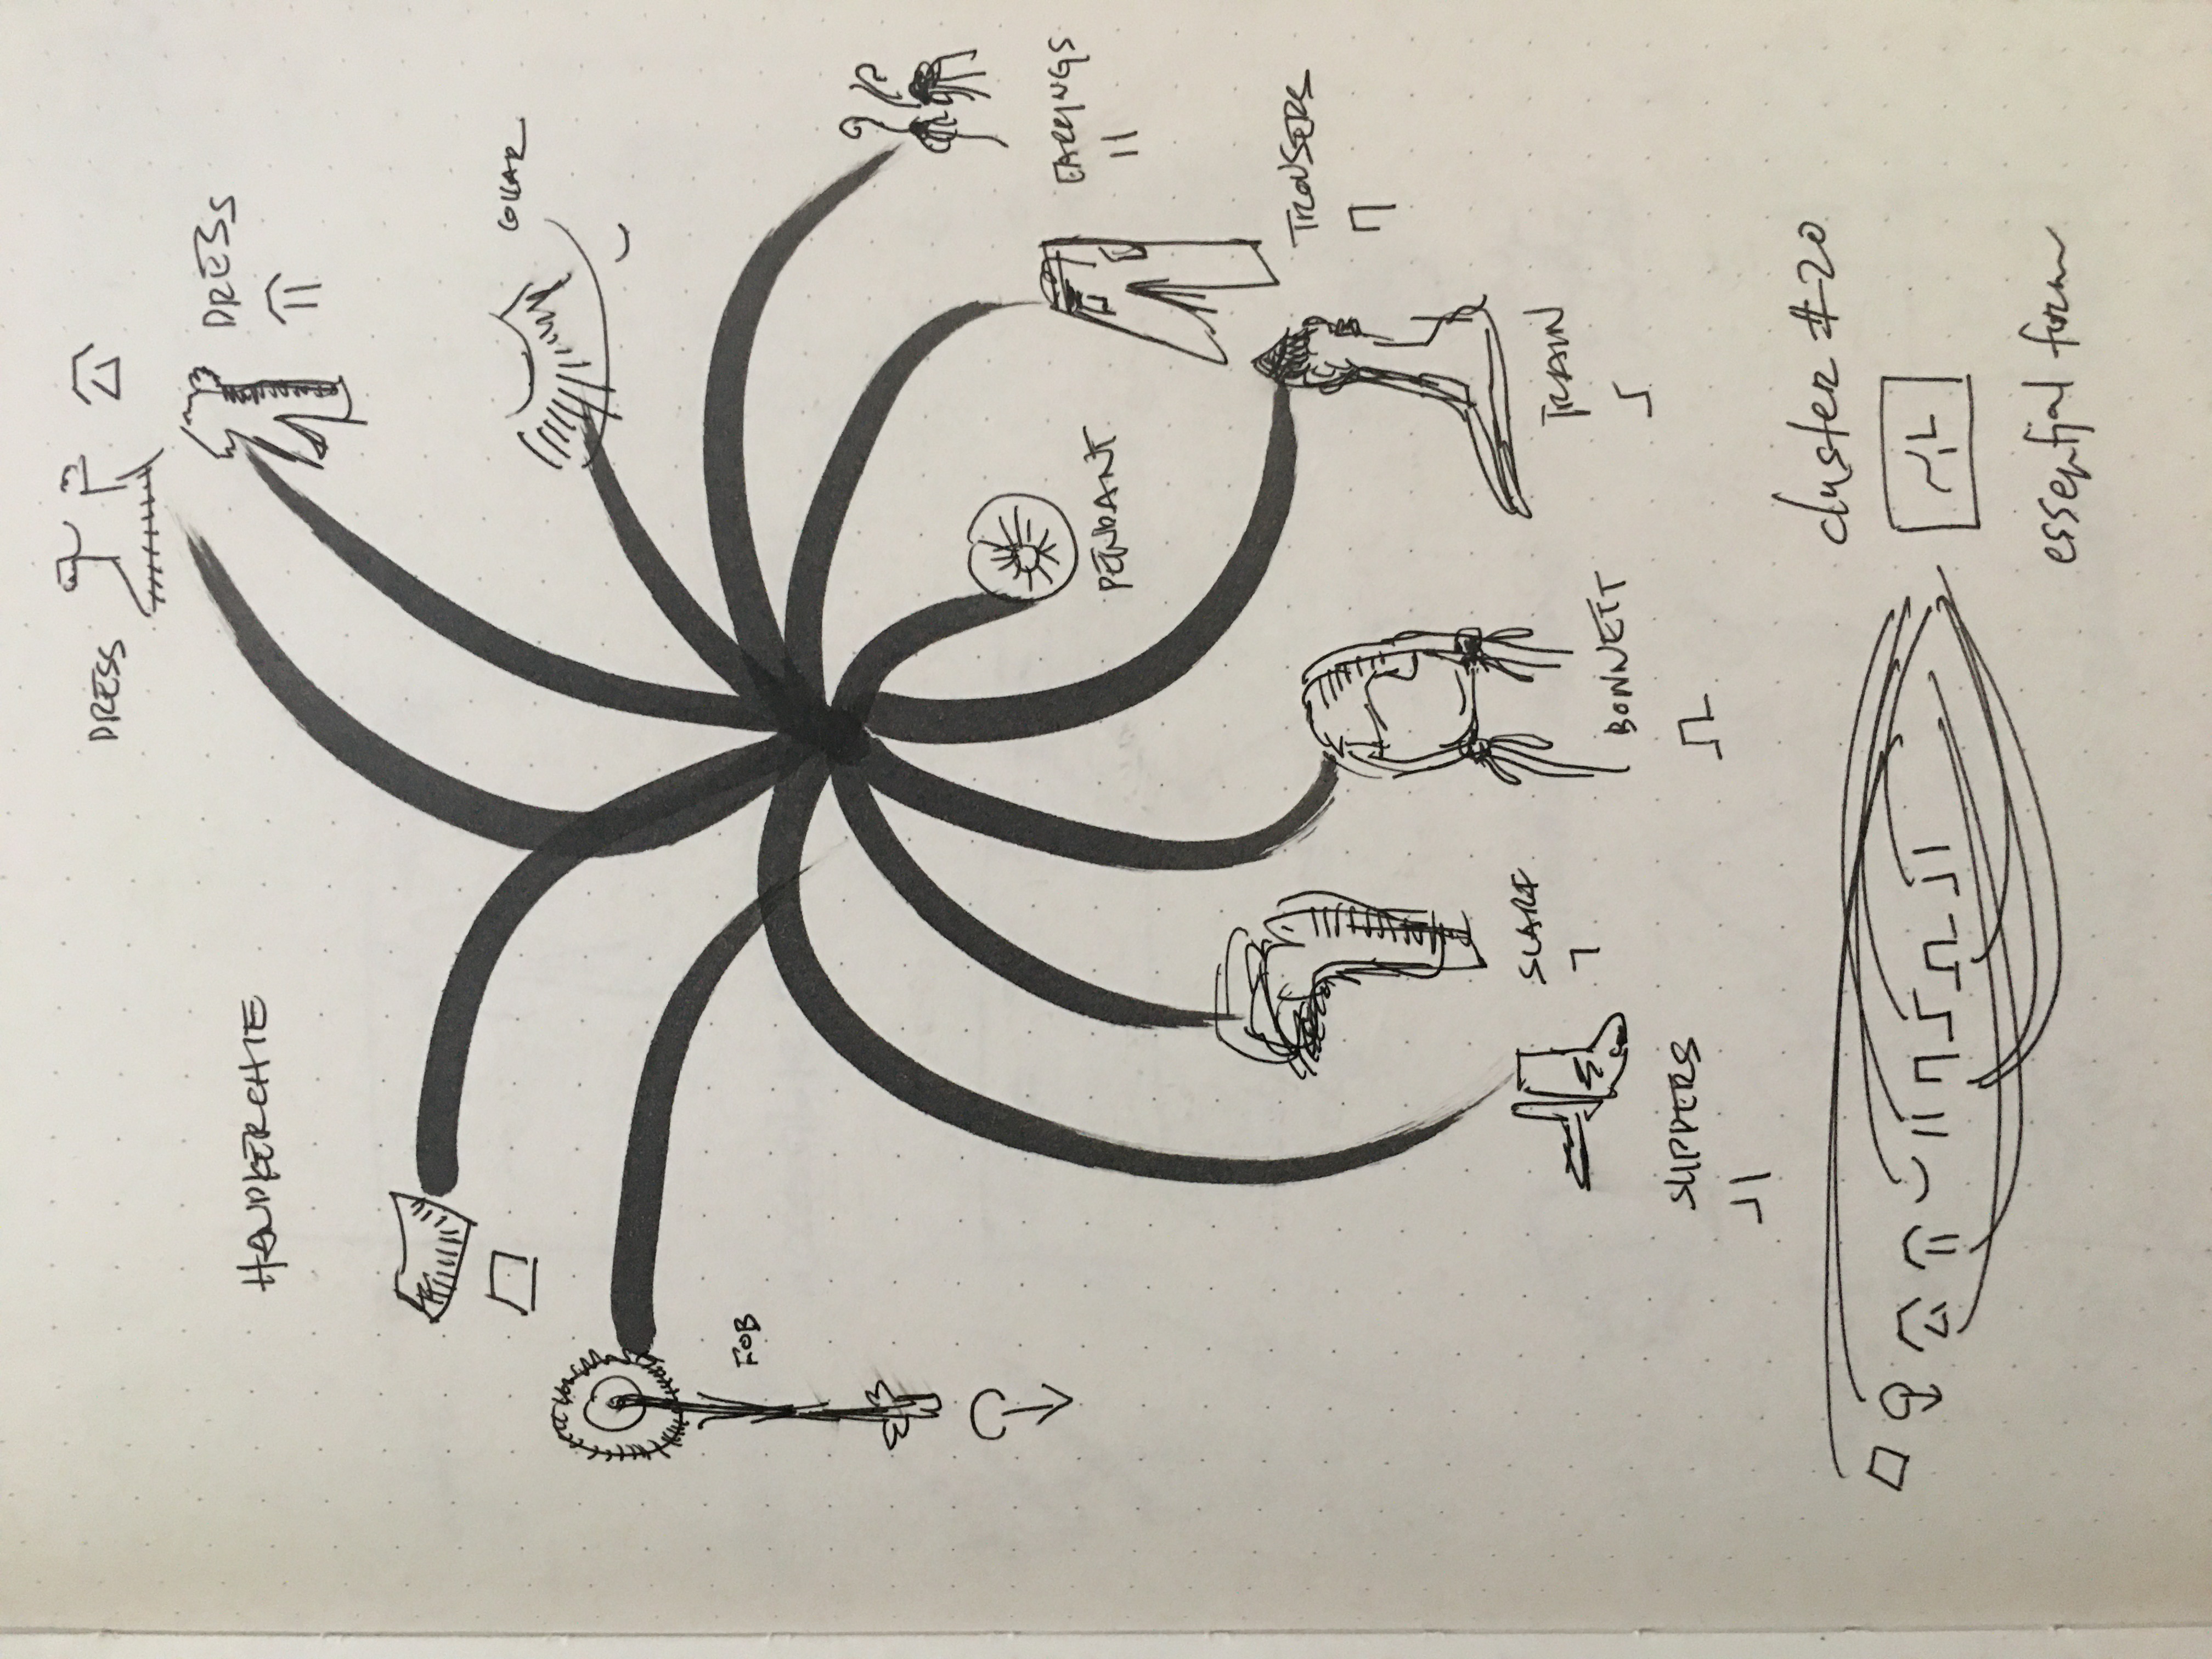 DRESS
DRESS
HANDKERCHIE
COLLAR
FOB
EARRINGS
PENDANT
TROUSERS
SCARF
TRAIN
BONNETT
SLIPPERS
cluster #20
essential form